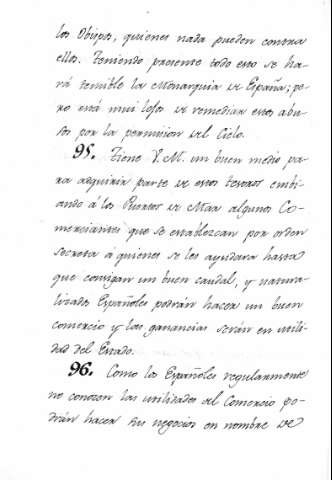 los Obispos, quienes nada pueden contra
ellos. Teniendo presente todo esto se ha-
rá temible la Monarquia de España; pe-
ro está mui lejos de remediar estos abu-
sos por la permision del Cielo.
95. Tiene V. M. un buen medio pa-
ra adquirir parte de estos tesoros embi-
ando á los Puertos de Mar algunos Co-
merciantes que se establezcan por orden
secreta á quienes se les ayudara hasta
que consigan un buen caudal, y natura-
lizados Españoles podrán hacer un buen
comercio y las ganancias serán en utili-
dad del Estado.
96. Como los Españoles regularmente
no conocen las utilidades del Comercio po-
drán hacer sus negocios en nombre de